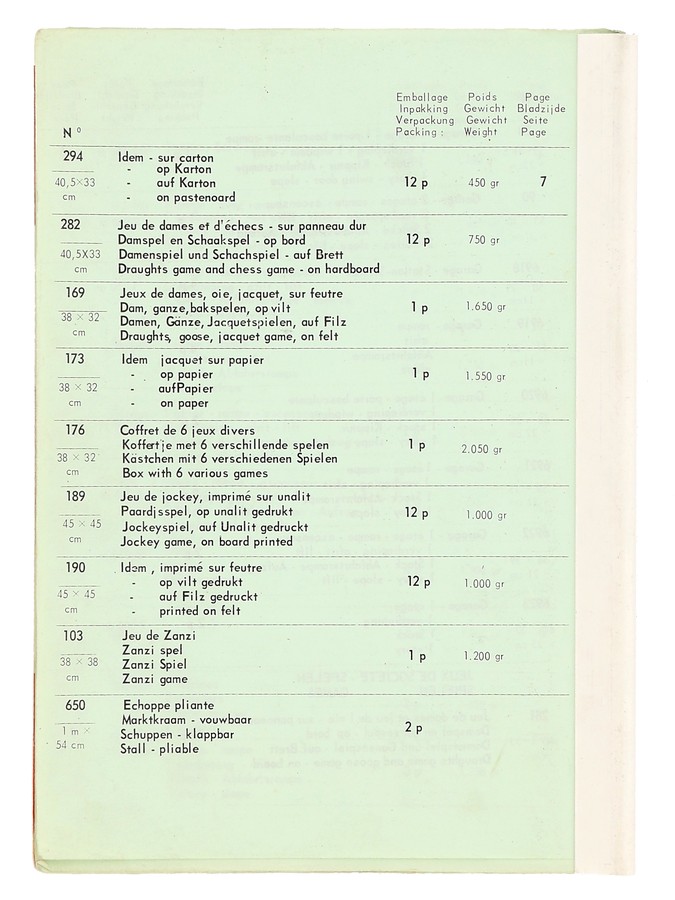 Emballage Poids Page
Inpakking Gewicht Bladzijde
Verpackung Gewicht Seite
N° Packing : Weight Page
294 Idem - sur carton
- op Karton
40,5×33 - auf Karton 12 p 450 gr 7
cm - on pastenoard
282 Jeu de dames et d'échecs - sur panneau dur
Damspel en Schaakspel - op bord 12 p 750 gr
40,5X33 Damenspiel und Schachspiel - auf Brett
cm Draughts game and chess game - on hardboard
169 Jeux de dames, oie, jacquet, sur feutre
Dam, ganze, bakspelen, op vilt 1 p 1.650 gr
38 × 32 Damen, Gänze, Jacquetspielen, auf Filz
cm Draughts, goose, jacquet game, on felt
173 Idem jacquet sur papier
- op papier 1 p 1.550 gr
38 × 32 - auf Papier
cm - on paper
176 Coffret de 6 jeux divers
Koffertje met 6 verschillende spelen 1 p 2.050 gr
38 × 32 Kästchen mit 6 verschiedenen Spielen
cm Box with 6 various games
189 Jeu de jockey, imprimé sur unalit
Paardjsspel, op unalit gedrukt 12 p 1.000 gr
45 × 45 Jockeyspiel, auf Unalit gedruckt
cm Jockey game, on board printed
190 Idem , imprimé sur feutre
- op vilt gedrukt 12 p 1.000 gr
45 × 45 - auf Filz gedruckt
cm - printed on felt
103 Jeu de Zanzi
Zanzi spel 1 p 1.200 gr
38 × 38 Zanzi Spiel
cm Zanzi game
650 Echoppe pliante
Marktkraam - vouwbaar 2 p
1 m × Schuppen - klappbar
54 cm Stall - pliable